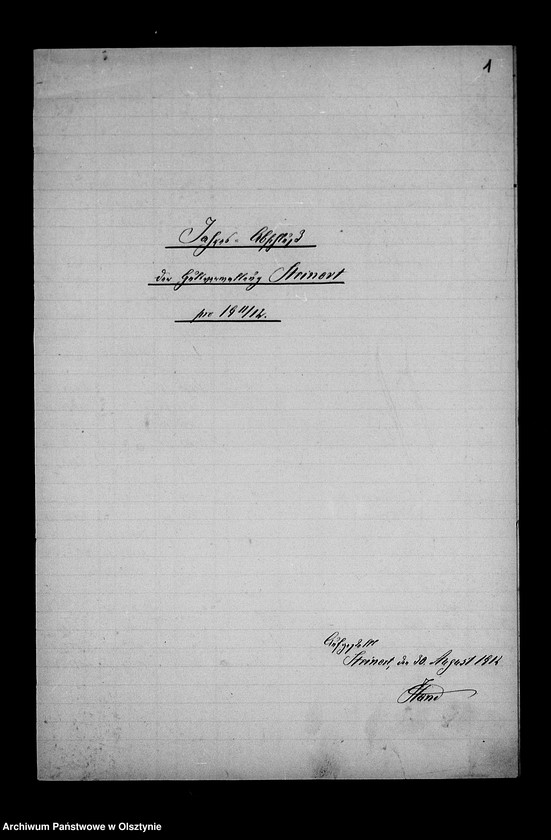 1
Jahres-Abschluß
der Gutsverwaltung Steinort
pro 1911/12.
Aufgestellt
Steinort, den 30. August 1912
Archiwum Państwowe w Olsztynie